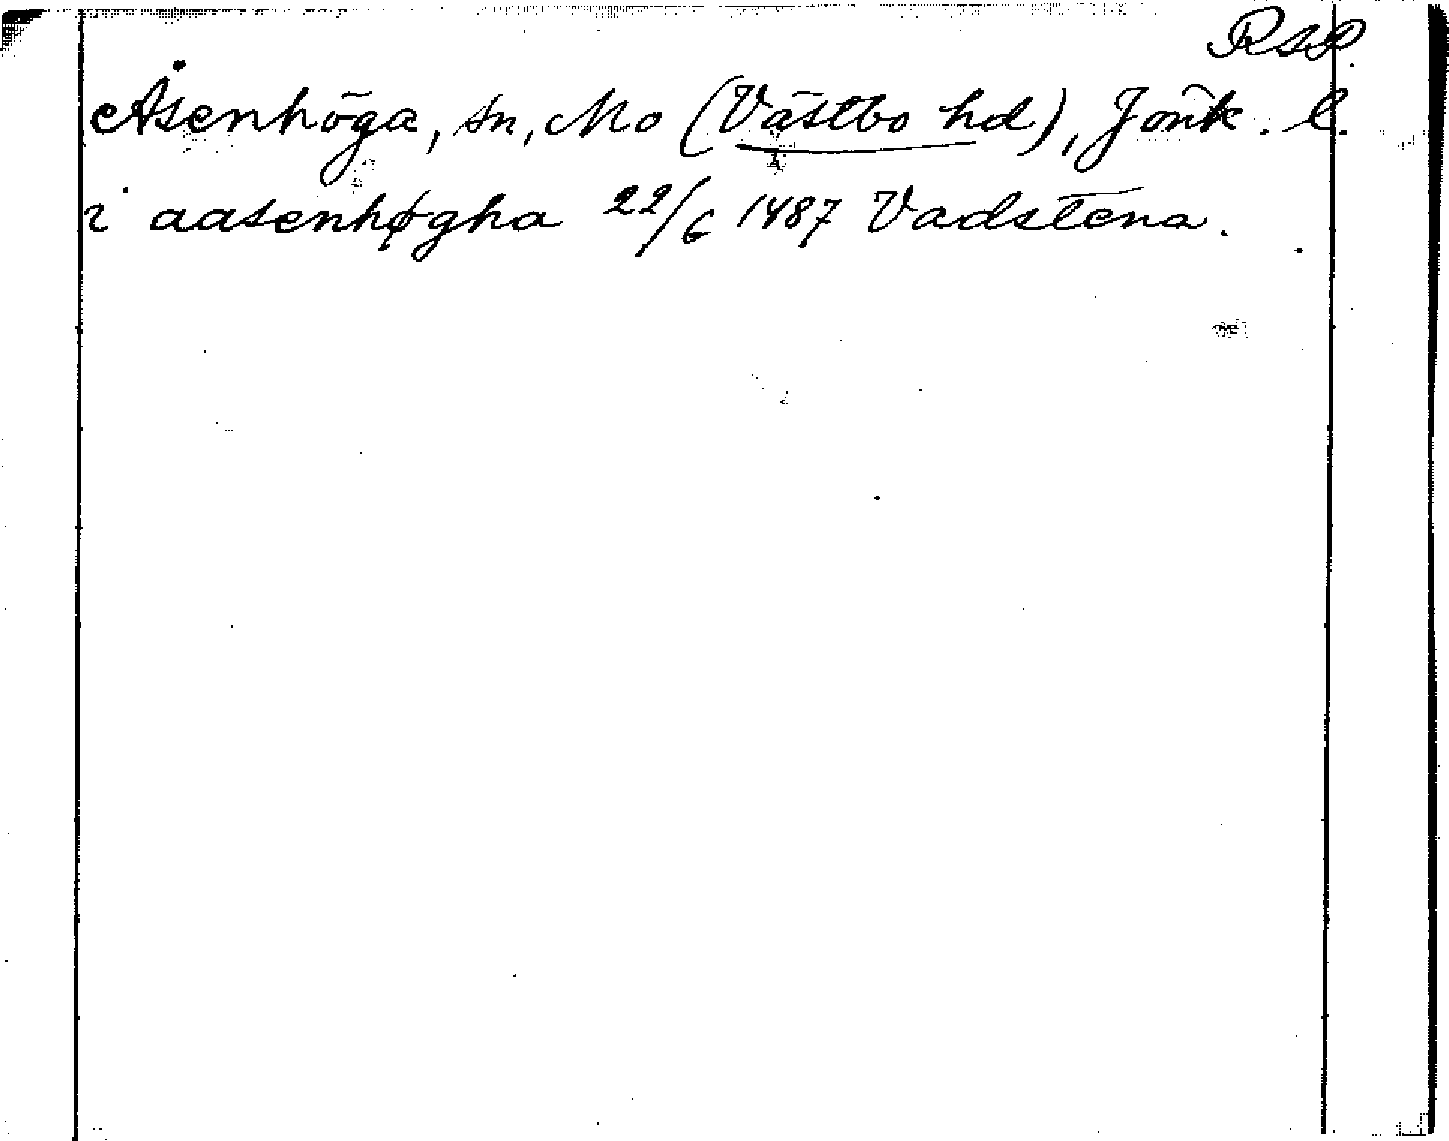 RAP.
Åsenhöga, sn, Mo (Västbo hd), Jönk. l.
i aasenhøgha 22/6 1487 Vadstena.